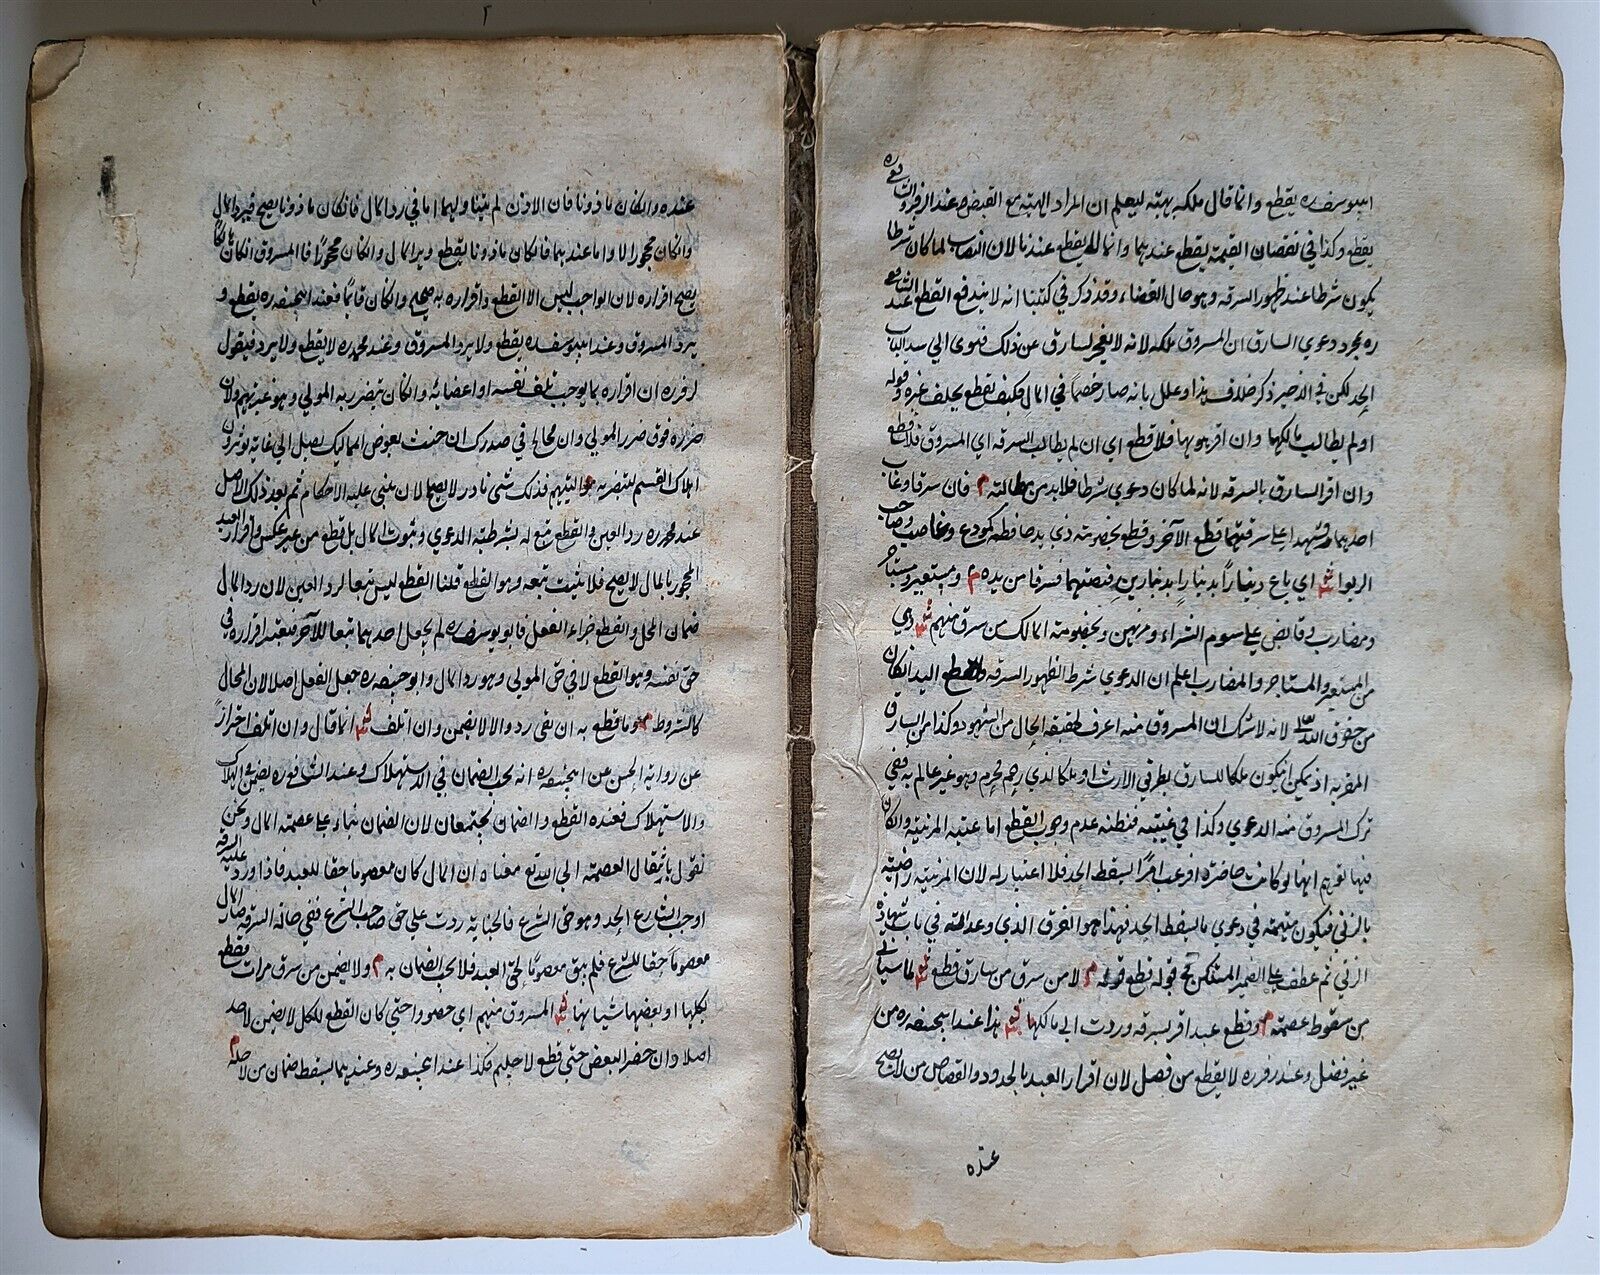 ابيوسف ره يقطع وانما قال ملكه بهبة ليعلم ان المراد الهبة مع القبض ص عند الزفر والشافعي ره
يقطع وكذا في نقصان القيمة يقطع عندهما وانما لا يقطع عندنا لان النصاب لما كان شرطا
يكون شرطا عند ظهور السرقه وهو حال القضاء وقد ذكر في كتبنا انه لا يندفع القطع عند الشافعي
ره بمجرد دعوي السارق ان المسروق ملكه لانه لا يعجز السارق عن ذلك فيؤدي الي سد الباب
الحد لكن في الوجيز ذكر خلاف هذا وعلل بانه صار خصما في المال فكيف يقطع بحلف غيره م وقوله
او لم يطالب مالكها وان اقر هو بها فلا قطع اي ان لم يطالب السرقه اي المسروق فلا قطع
وان اقر السارق بالسرقه لانه لما كان دعوي شرطا فلابد من مطالبته م فان سرقا وغاب
احدهما وشهد اعلي سرقتهما قطع الآخر وقطع بخصومة ذي يد حافظه كمودع وغاصب وصاحب
الربوا ش اي باع دينارا بدينارين فقبضهما فسرقا من يده م ومستعير ومستاجر
ومضارب وقابض علي سوم الشراء ومرتهن وبخصومة المالك من سرق منهم ش ذي
من المستعير والمستاجر والمضارب اعلم ان الدعوي شرط لظهور السرقه والقطع اليد انكان
من حقوق الله تع لانه لا شك ان المسروق منه اعرف بحقيقة الحال من الشهود وكذا من السارق
المقر به اذ يمكن ان يكون ملكا للسارق بطريق الارث او ملكا لذي رحم محرم وهو غير عالم به ففي
ترك المسروق منه الدعوي وكذا في غيبته مظنة عدم وجوب القطع اما غيبة المزنية وانكان
فيها توهم انها لو كانت حاضرة ادعت امرا يسقط الحد فلا اعتبار له لان المزنية راضية
بالزني فيكون متهمة في دعوي ما يسقط الحد فهذا هو الفرق الذي وعدته في باب شهادة
الزني ثم عطف علي الضمير المستكن في قوله قطع قوله م لا من سرق من سارق قطع ش لما سياتي
من سقوط عصمته م وقطع عبد اقر بسرقة وردت الي مالكها ش هذا عند ابيحنيفه ره من
غير فصل وعند زفر ره لا يقطع من فصل لان اقرار العبد بالحدود والقصاص من لا يصح
عنده
عنده وانكان ماذونا فان الاذن لم يتناولهما اما في رد المال فانكان ماذونا يصح فيرد المال
وانكان محجورا لا واما عندهما فانكان ماذونا يقطع ويرد المال وانكان محجورا فالمسروق انكان هالكا
يصح اقراره لان الواجب ليس الا القطع واقراره به صحيح وانكان قائما فعند ابيحنيفه ره يقطع و
يرد المسروق وعند ابيوسف ره يقطع ولا يرد المسروق وعند محمد ره لا يقطع ولا يرد فيقول
لزفر ره ان اقراره بما يوجب تلف نفسه او اعضائه وانكان يتضرر به المولي وهو غير متهم ولان
ضرره فوق ضرر المولي
عند محمد ره رد العين والقطع تبع له بشرطية الدعوي وثبوت المال بلا قطع من غير عكس واقرار العبد
المحجور بالمال لا يصح فلا يثبت تبعه وهو القطع قلنا القطع ليس تبعا لرد العين لان رد المال
ضمان المحل والقطع جزاء الفعل فابو يوسف ره لم يجعل احدهما تبعا للآخر فيعتبر اقراره في
حق نفسه وهو القطع لا في حق المولي وهو رد المال وابو حنيفه ره جعل الفعل اصلا لان المحال
كالشروط م وما قطع به ان بقي رد والا لا يضمن وان اتلف ش انما قال وان اتلف احترازا
عن رواية الحسن عن ابيحنيفه ره انه يجب الضمان في الاستهلاك وعند الشافعي ره يضمن في الهلاك
والاستهلاك فعنده القطع والضمان يجتمعان لان الضمان بناء علي عصمة المال ونحن
نقول بانتقال العصمة الي الله تع معناه ان المال كان معصوما حقا للعبد فاذا ورد عليه السرقه
اوجب الشارع الحد وهو حق الشرع فالجناية وردت علي حق صاحب الشرع ففي حالة السرقه صار المال
معصوما حقا للشرع فلم يبق معصوما لحق العبد فلا يجب الضمان به م ولا يضمن من سرق مرات فقطع
بكلها او بعضها شيا منها ش المسروق منهم اي حضروا حتي كان القطع للكل لا يضمن لاحد
اصلا وان حضر البعض حتي قطع لاجلهم فكذا عند ابيحنيفه ره وعندهما يسقط ضمان من لاجله